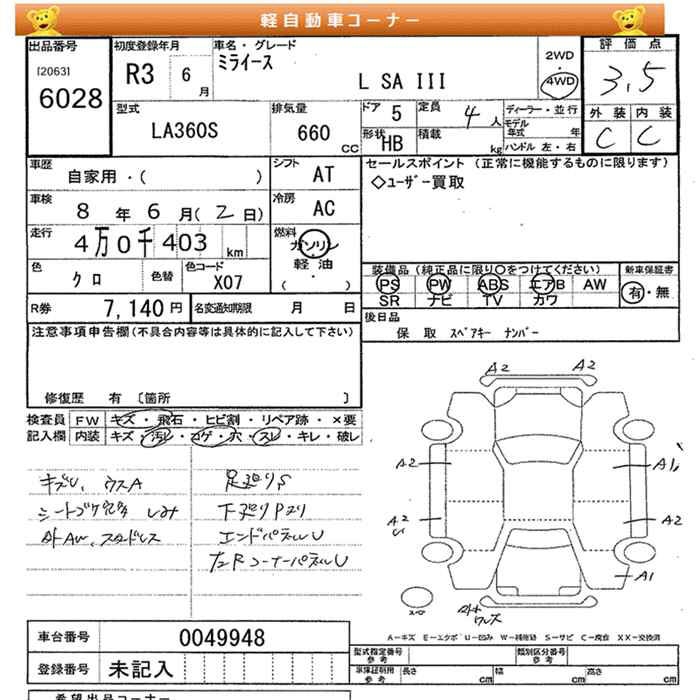 軽自動車コーナー
出品番号 初度登録年月 車名・グレード 2WD ・ 4WD 評価点
[2063] 6028 R3 6月 ミライース L SA III 3.5
型式 LA360S 排気量 660 CC
ドア 5 定員 4人 ディーラー・並行 外装 内装
形状 HB 積載 kg モデル年式 年 ハンドル 左・右 C C
車歴 自家用・( ) シフト AT
セールスポイント (正常に機能するものに限ります)
◇ユーザー買取
車検 8年6月(2日) 冷房 AC
走行 4万0千403km 燃料 ガソリン・軽油・( )
色 クロ 色替 色コード X07
装備品(純正品に限り○をつけてください) 新車保証書
PS PW ABS エアB AW 有・無
SR ナビ TV カワ
R券 7,140円 名変通知期限 月 日
後日品
保 取 スペアキー ナンバー
注意事項申告欄(不具合内容等は具体的に記入して下さい)
修復歴 有 [箇所 ]
検査員 FW キズ・飛石・ヒビ割・リペア跡・×要
記入欄 内装 キズ・汚レ・コゲ・穴・スレ・キレ・破レ
キズU、ウスA 足廻りS
シートコゲ穴多 しみ 下廻りPヌリ
社外AW、スタッドレス エンドパネルU
左Rコーナーパネル U
A2 A2
A2 A1
A2 U A2
A1
A-キズ E-エクボ U-凹み W-補修跡 S-サビ C-腐食 XX-交換済
車台番号 0049948
登録番号 未記入
型式指定番号 参考 類別区分番号 参考
車庫証明用 参考 長さ cm 幅 cm 高さ cm
希望出品コーナー